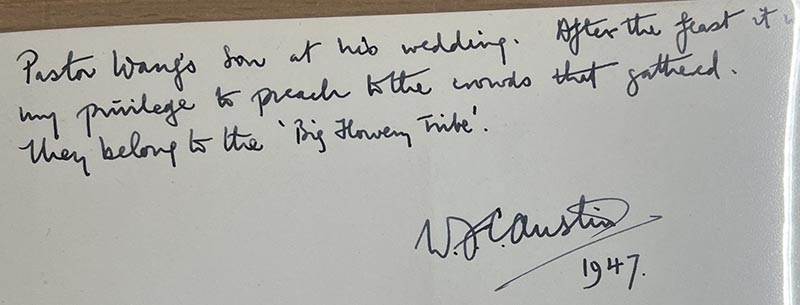 Pastor Wang's son at his wedding. After the feast it
my privilege to preach to the crowds that gathered.
They belong to the 'Big Flowery Tribe'.
W.J.C. Austin
1947.